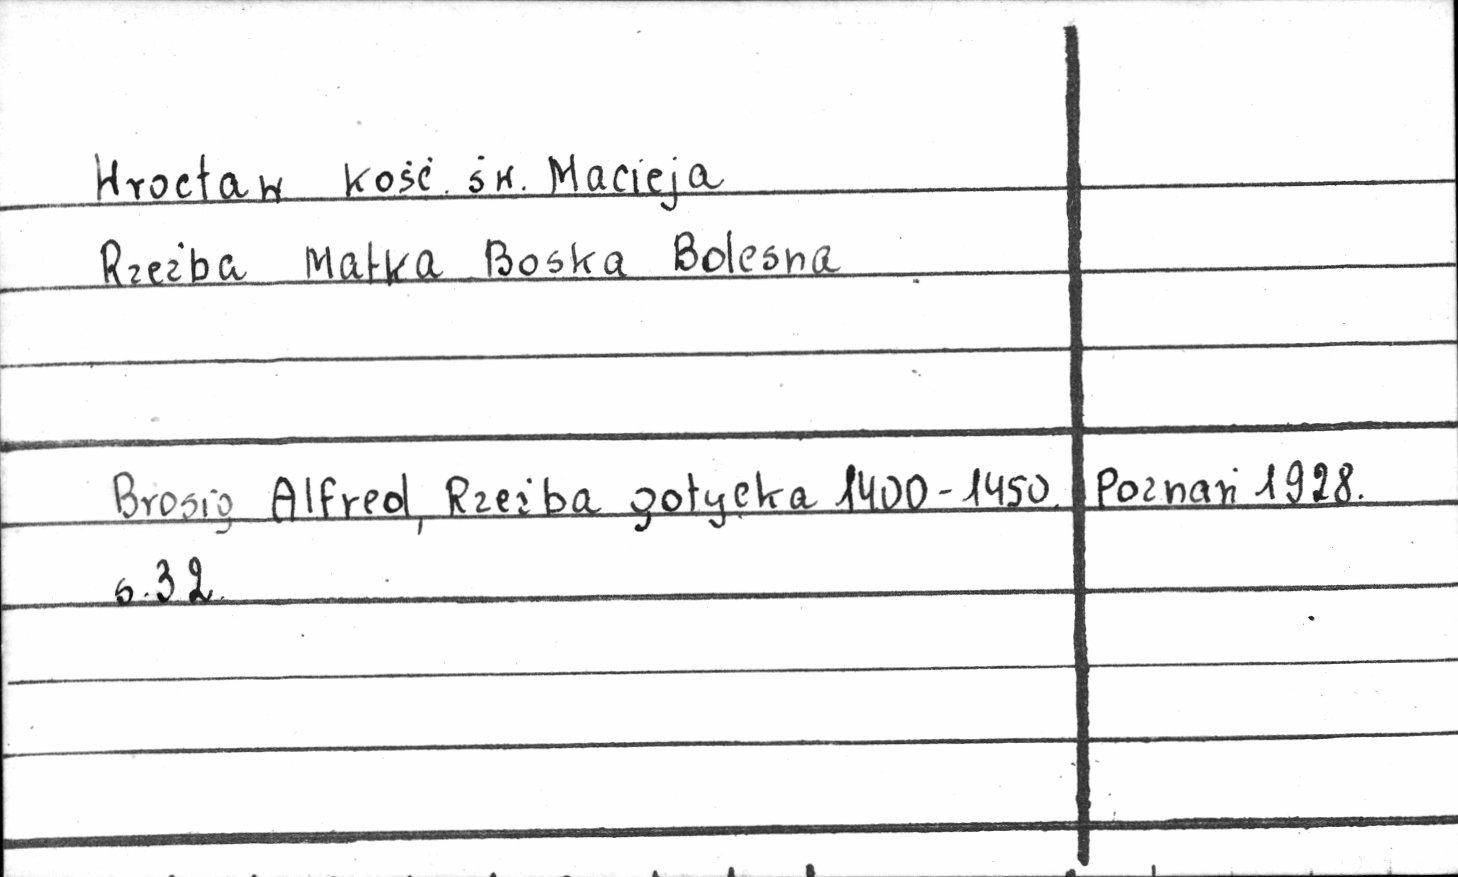 Wrocław kość. św. Macieja
Rzeźba Matka Boska Bolesna
Brosig Alfred, Rzeźba gotycka 1400-1450. Poznań 1928.
s. 32.